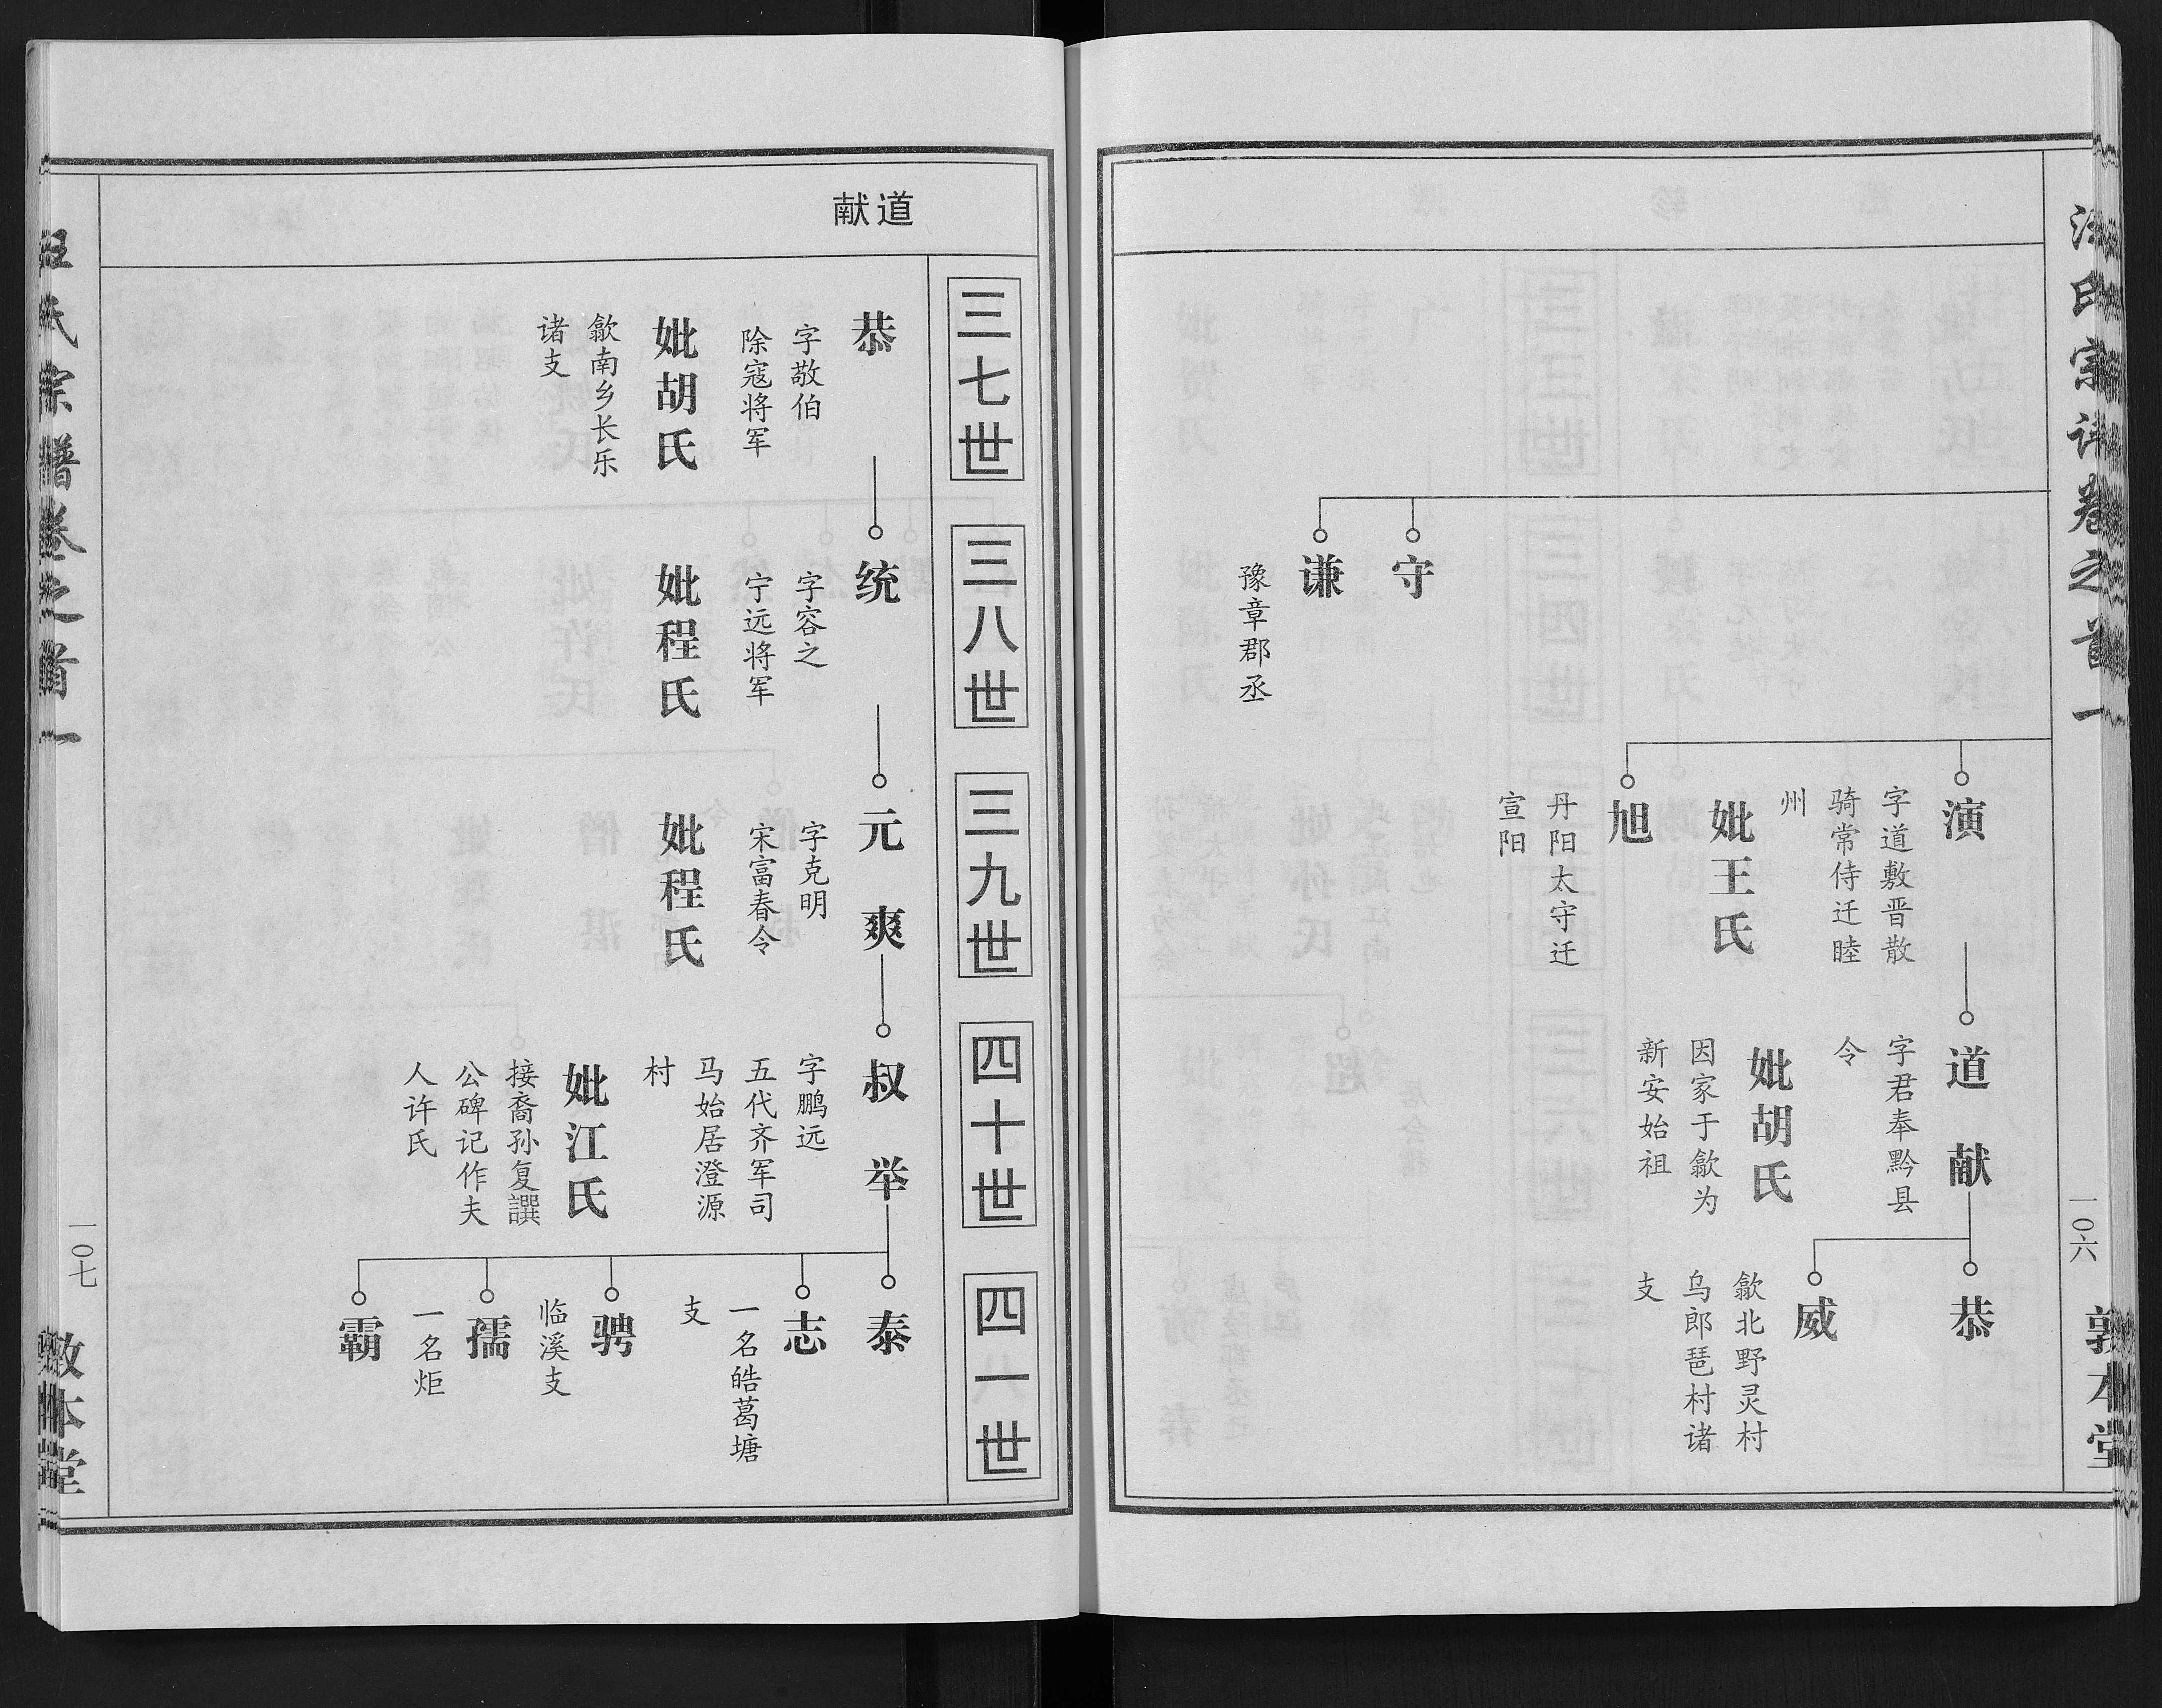 汪氏宗谱卷之首一
一〇六
敦本堂
守
谦
豫章郡丞
演
字道敷晋散
骑常侍迁睦
州
妣王氏
旭
丹阳太守迁
宣阳
道献
字君奉黔县
令
妣胡氏
因家于歙为
新安始祖
恭
威
歙北野灵村
乌郎琶村诸
支
道献
三七世
三八世
三九世
四十世
四一世
恭
字敬伯
除寇将军
妣胡氏
歙南乡长乐
诸支
统
字容之
宁远将军
妣程氏
元爽
字克明
宋富春令
妣程氏
叔举
字鹏远
五代齐军司
马始居澄源
村
妣江氏
接裔孙复譔
公碑记作夫
人许氏
泰
志
一名皓葛塘
支
骋
临溪支
孺
一名炬
霸
汪氏宗譜卷之首一
一〇七
敦本堂